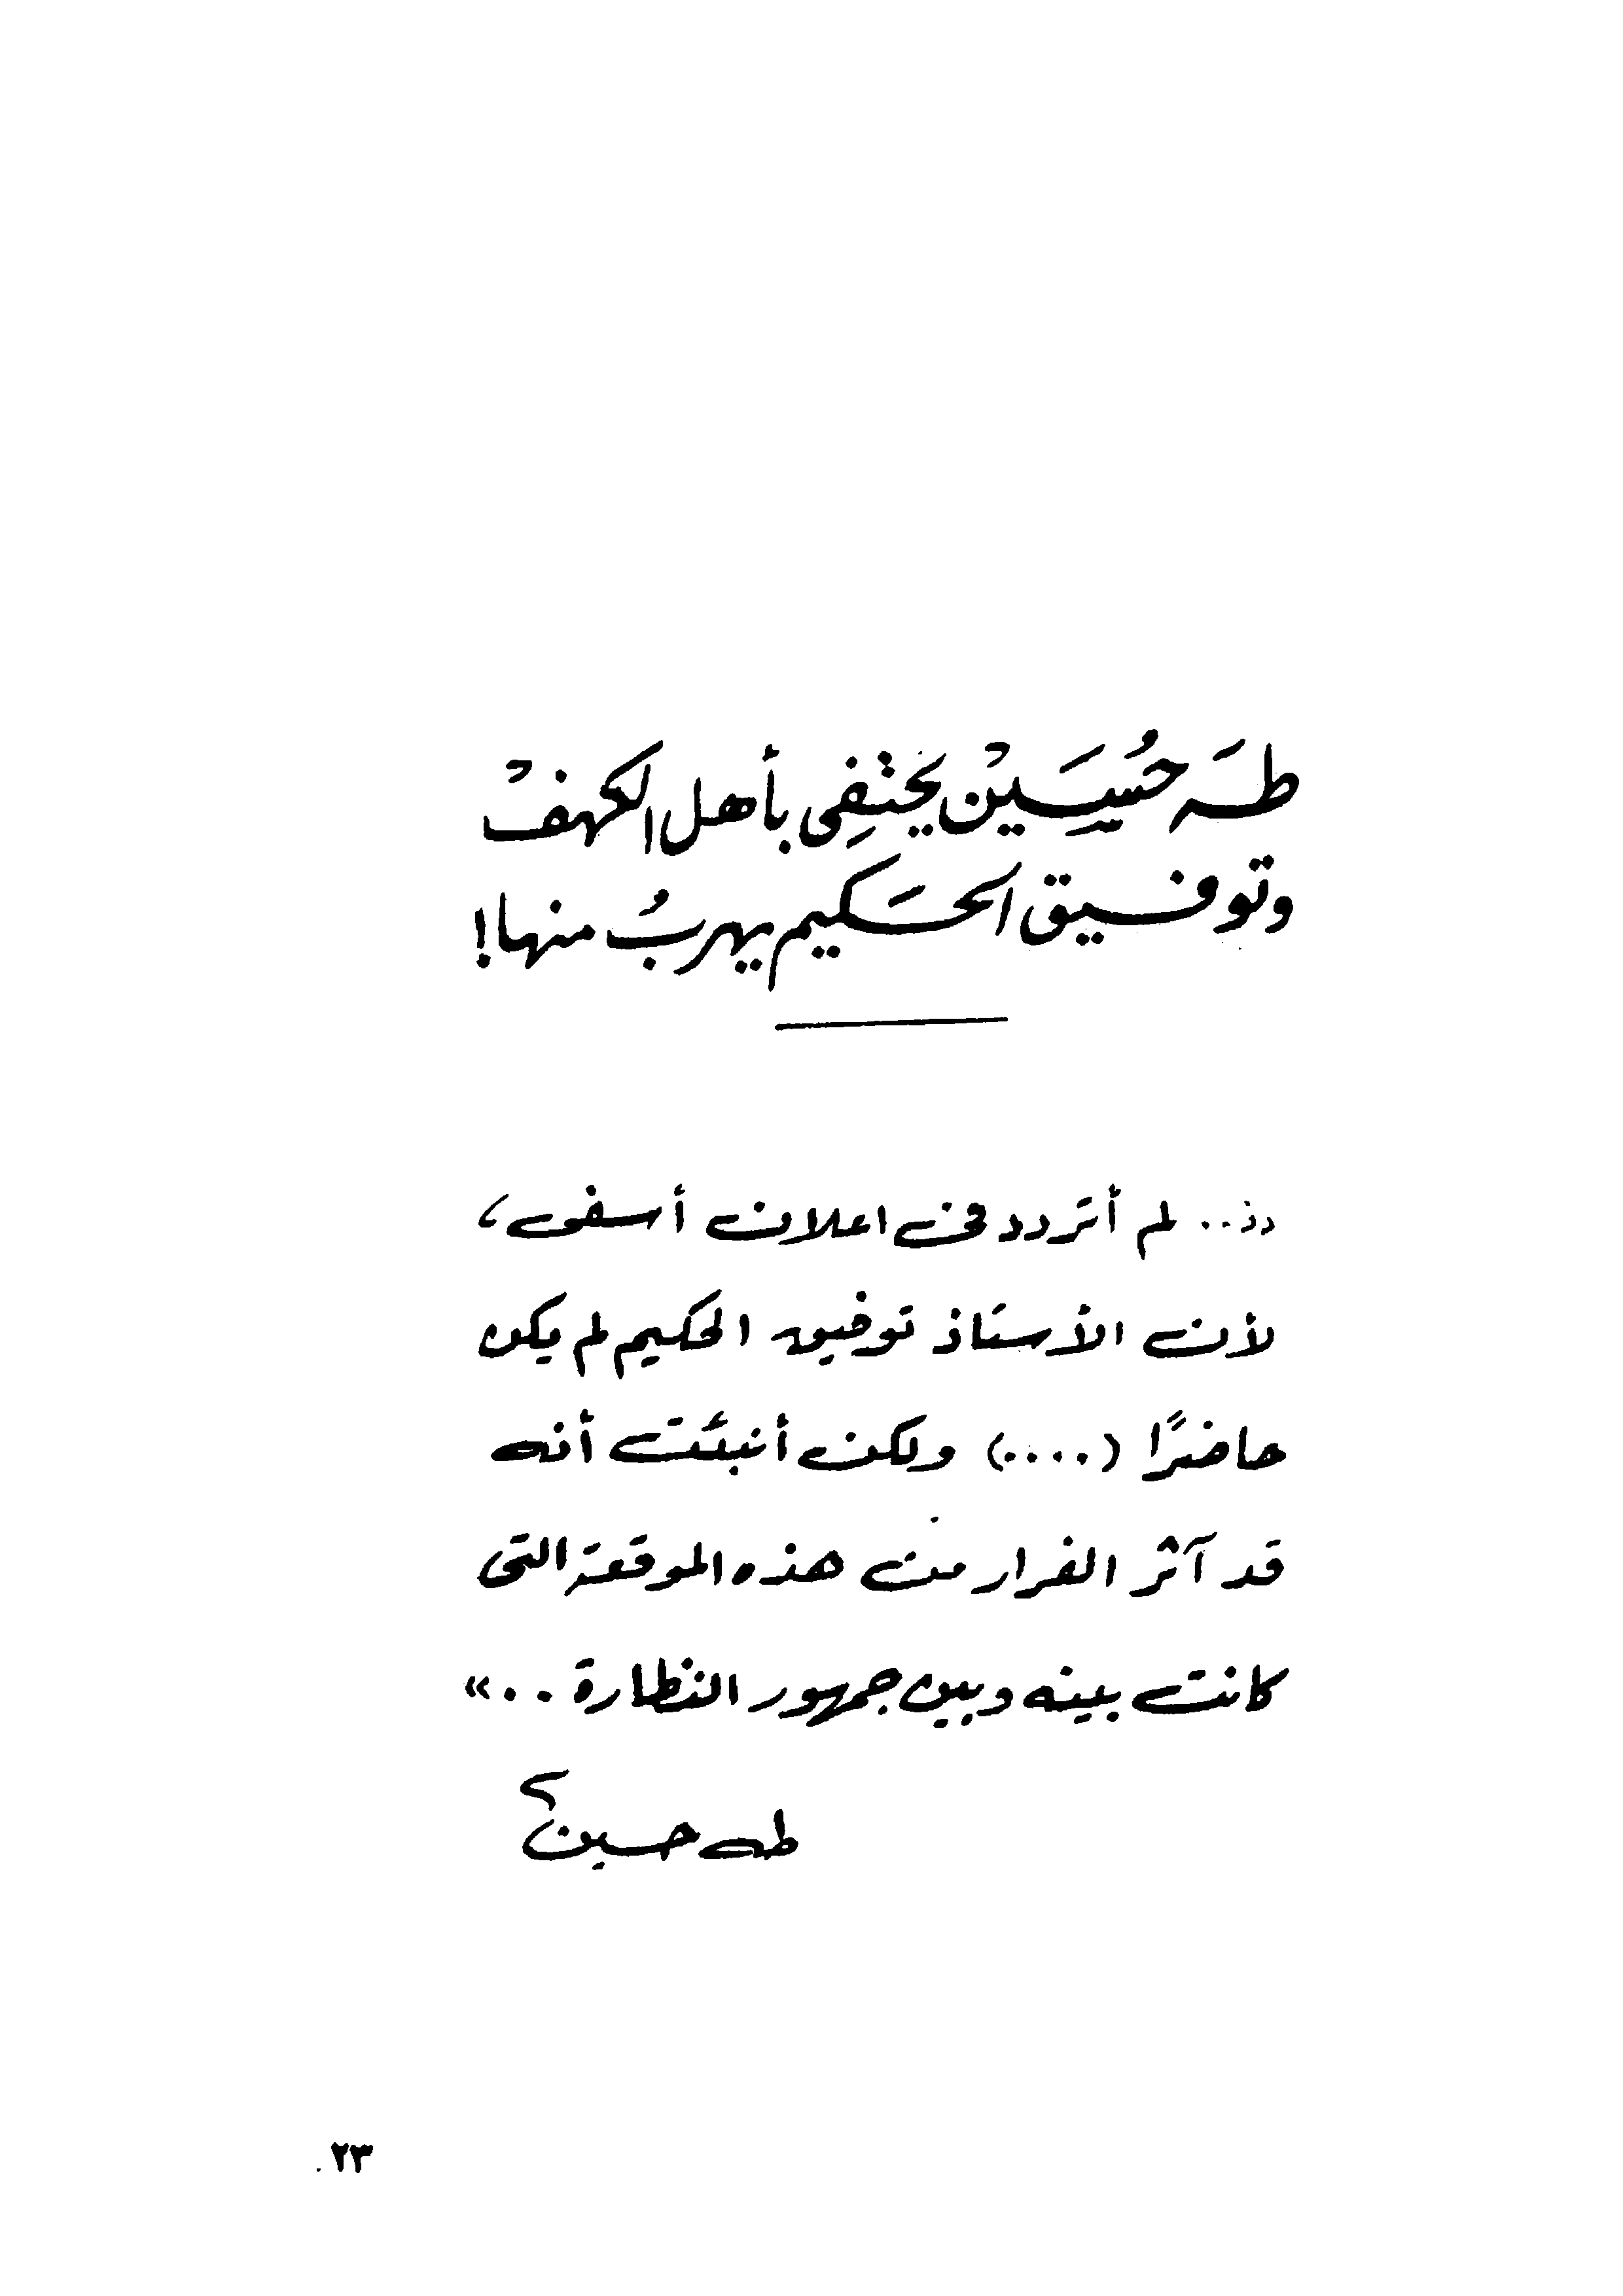 طه حُسَيْن يحتفِى بأهل الكهفْ
وتوفيق الحَكيم يهربُ منها!
«.. لم أتردد فى اعلان أسفى،
لأن الأستاذ توفيق الحكيم لم يكن
حاضرًا (....) ولكن أنبئت أنه
قد آثر الفرار من هذه الموقعة التى
كانت بينه وبين جمهور النظارة ..»
طه حسين
٢٣